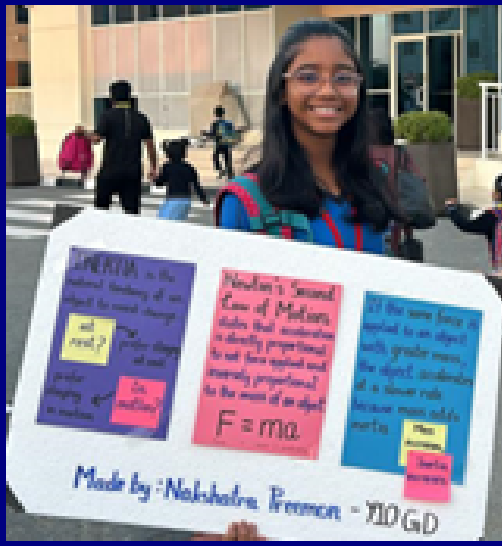 INERTIA is the
natural tendency of an
object to resist change
at
rest?
prefer staying
at rest
prefer
staying
in motion
in
motion?
Newton's Second
Law of Motion
states that acceleration
is directly proportional
to net force applied and
inversely proportional
to the mass of an object
F = ma
If the same force is
applied to an object
with greater mass,
the object accelerates
at a slower rate
because mass adds
inertia
Mass
Inertia
Made by: Nakshatra Premon - Y10GD